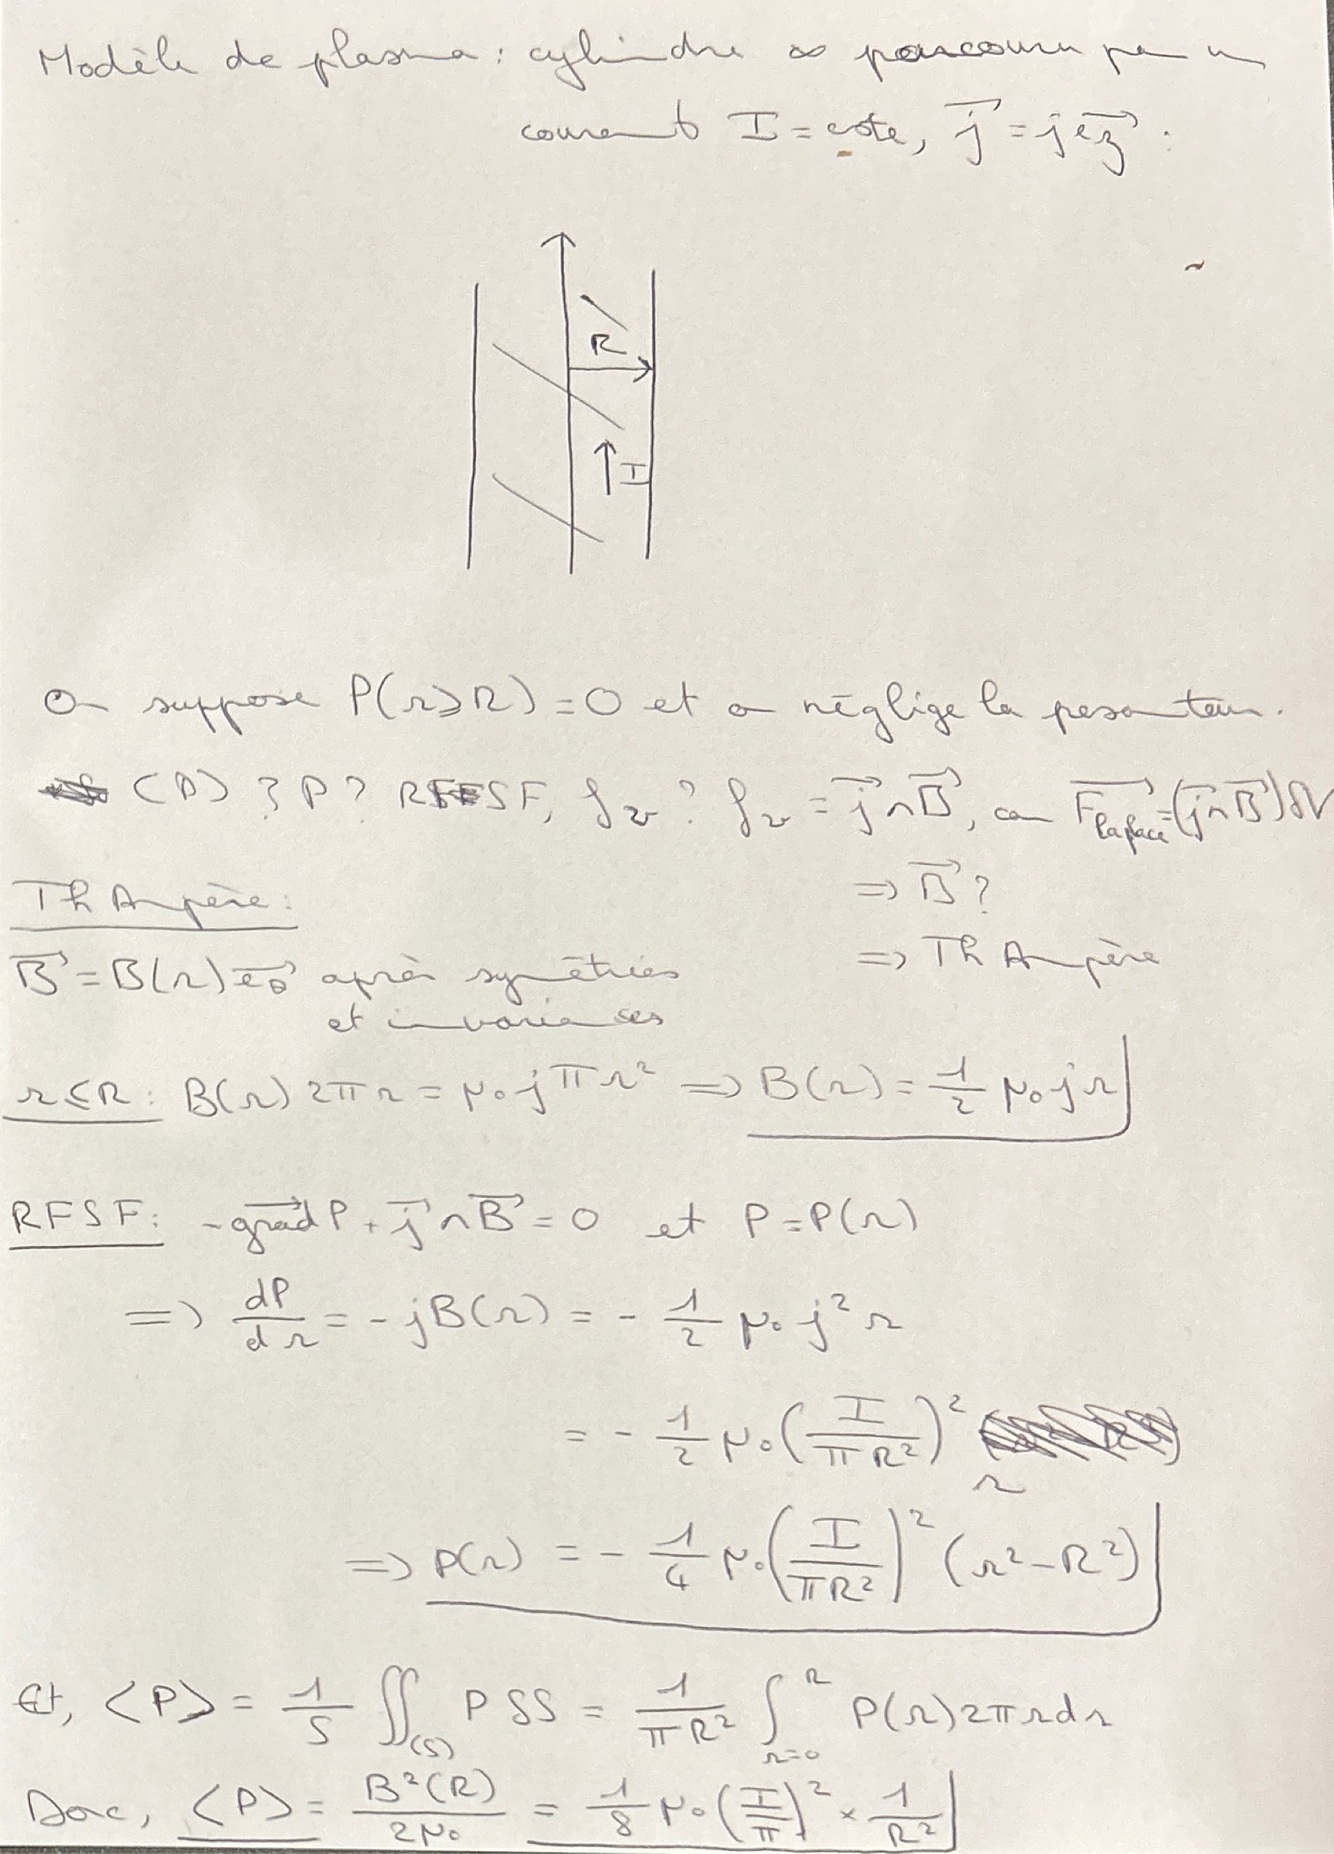 Modèle de plasma : cylindre ∞ parcouru par un
courant I = cste, \vec{j} = j\vec{e_z} :
R
I
On suppose P(r⩾R) = 0 et on néglige la pesanteur.
⟨P⟩ ? P ? RFSF, f_v ? f_v = \vec{j}∧\vec{B}, car \vec{F_{Laplace}} = (\vec{j}∧\vec{B})δV
⇒ \vec{B} ?
Th Ampère :
⇒ Th Ampère
\vec{B} = B(r)\vec{e_θ} après symétries
et invariances
r≤R : B(r) 2πr = μ₀ j πr² ⇒ B(r) = \frac{1}{2} μ₀ j r
RFSF : -\vec{grad} P + \vec{j}∧\vec{B} = 0 et P = P(r)
⇒ \frac{dP}{dr} = -jB(r) = -\frac{1}{2} μ₀ j² r
= -\frac{1}{2} μ₀ (\frac{I}{πR²})² r
⇒ P(r) = -\frac{1}{4} μ₀ (\frac{I}{πR²})² (r² - R²)
Et, ⟨P⟩ = \frac{1}{S} ∬_{(S)} P δS = \frac{1}{πR²} ∫_{r=0}^{R} P(r) 2πr dr
Donc, ⟨P⟩ = \frac{B²(R)}{2μ₀} = \frac{1}{8} μ₀ (\frac{I}{π})² × \frac{1}{R²}